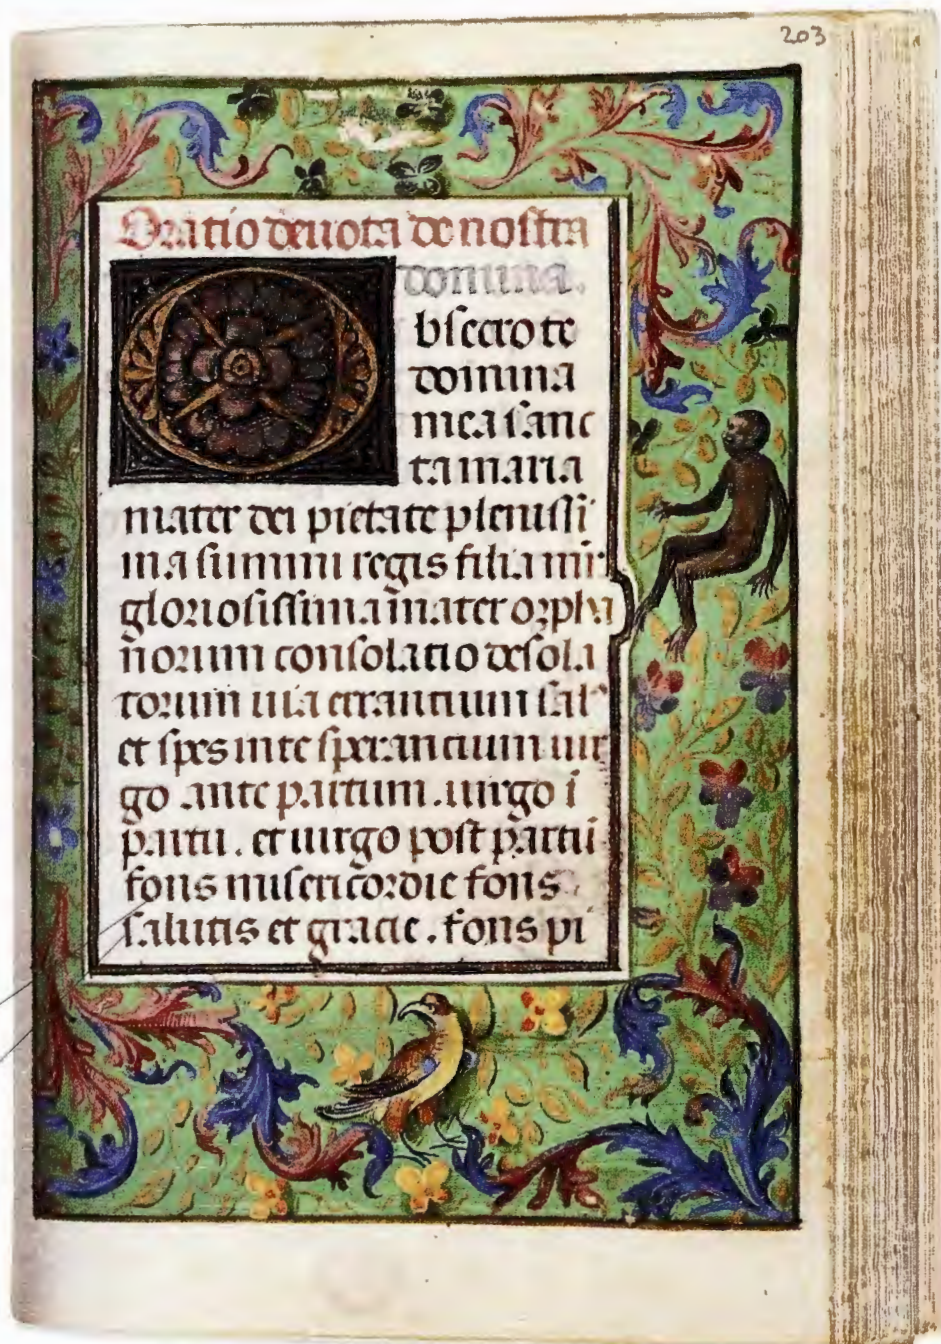 203
Oratio deuota de nostra
domina.
Obsecro te
domina
mea sanc
ta maria
mater dei pietate plenissi
ma summi regis filia
gloriosissima mater orpha
norum consolatio desola
torum uia errantium sal᾿
et spes in te sperantium uir
go ante partum. uirgo ī
partu. et uirgo post partū
fons misericordie fons
salutis et gracie. fons pi